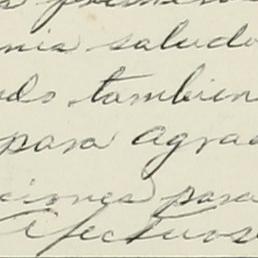 nia saludo
do tambien
para agra
ciones para
Afectuos